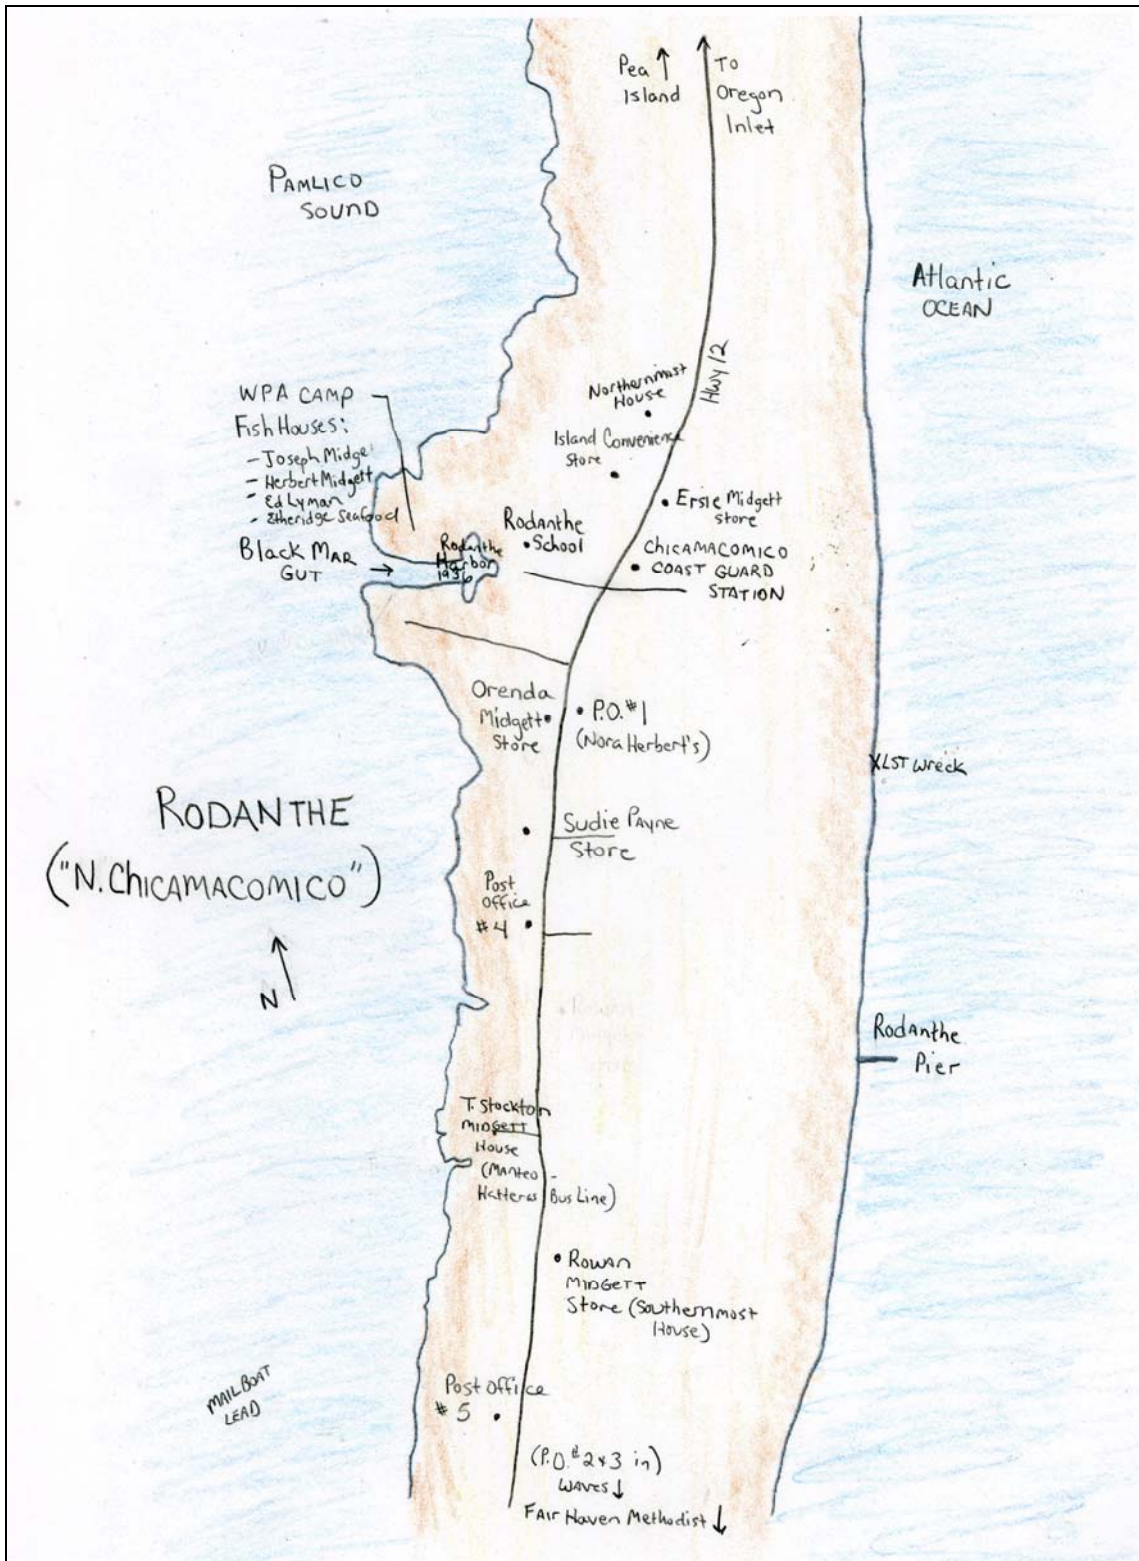 Pea
Island
To
Oregon
Inlet
PAMLICO
SOUND
Atlantic
OCEAN
Hwy 12
Northernmost
House
Island Convenience
Store
WPA CAMP
Fish Houses:
- Joseph Midge
- Herbert Midgett
- Ed Lyman
- Etheridge Seafood
Ersie Midgett
store
Rodanthe
School
Rodanthe
Harbor
1936
Black MAR
GUT
CHICAMACOMICO
COAST GUARD
STATION
Orenda
Midgett
Store
P.O. #1
(Nora Herbert's)
XLST Wreck
RODANTHE
("N. CHICAMACOMICO")
Sudie Payne
Store
Post
Office
#4
N
Rodanthe
Pier
T. Stockton
MIDGETT
House
(Manteo -
Hatteras Bus Line)
Rowan
MIDGETT
Store (Southernmost
House)
MAILBOAT
LEAD
Post Office
#5
(P.O. # 2 & 3 in)
WAVES
FAIR HAVEN Methodist